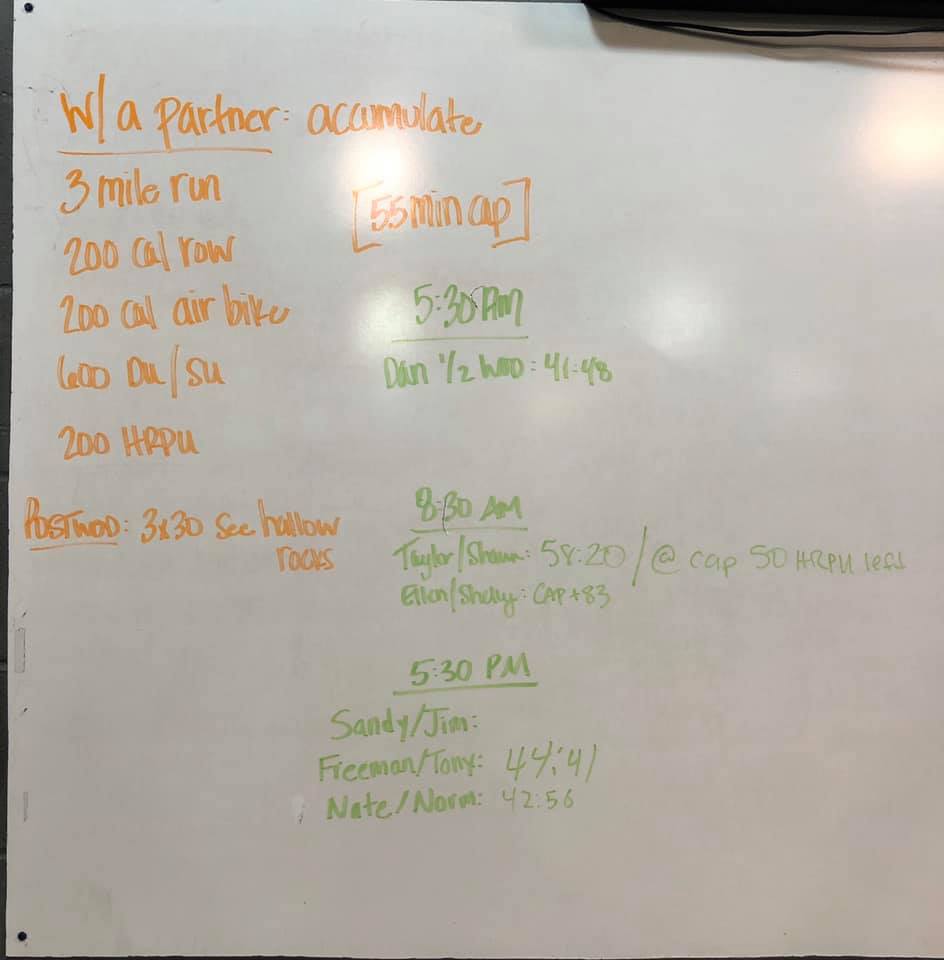 W/ a partner: accumulate
3 mile run
[55 min cap]
200 Cal row
200 Cal air bike
600 DU/SU
200 HRPU
Postwod: 3x30 sec hallow
rocks
5:30 AM
Dan 1/2 WOD: 41:48
8:30 AM
Taylor/Shawn: 58:20 / @ cap 50 HRPU left
Ellen/Shelly: CAP + 83
5:30 PM
Sandy/Jim:
Freeman/Tony: 44:41
Nate/Norm: 42:56